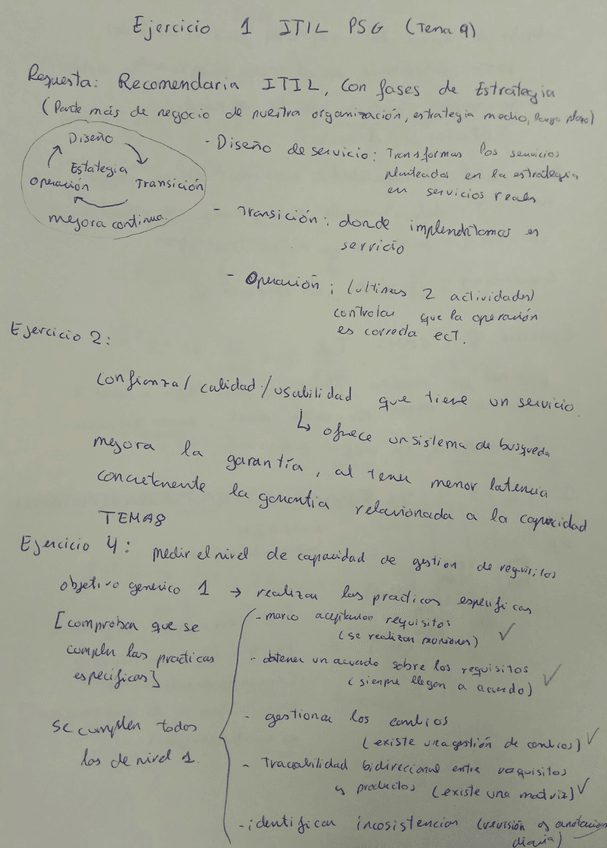 Ejercicio 1 ITIL PSG (Tema 9)
Respuesta: Recomendaria ITIL, con fases de Estrategia
(Parte más de negocio de nuestra organización, estrategia medio, largo plazo)
Diseño
Estategia
Operación Transición
mejora continua.
- Diseño de servicio: Transformar los servicios
planteados en la estrategia
en servicios reales
- Transición: donde el
servicio
- Operación: (ultimas 2 actividades)
controlar que la operación
es correcta ect.
Ejercicio 2:
Confianza/ calidad/usabilidad que tiene un servicio.
↳ ofrece un sistema de busqueda
mejora la garantía, al tener menor latencia
concretamente la garantia relacionada a la capacidad
TEMA8
Ejercicio 4: medir el nivel de capacidad de gestion de requisitos
objetivo generico 1 → realizar las practicas especificas
[comprobar que se
cumplen las practicas
especificas]
se cumplen todos
los de nivel 1.
- marco aceptacion requisitos
(se realizan reuniones) ✓
- obtener un acuerdo sobre los requisitos
(siempre llegan a acuerdo) ✓
- gestionar los cambios
(existe una gestión de cambios) ✓
- Trazabilidad bidireccional entre requisitos
y productos (existe una matriz) ✓
- identificar incosistencias (revisión
diaria)